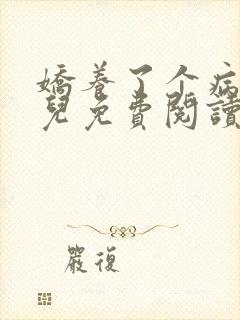 嬌養了个病
兒免費閱讀
嚴復